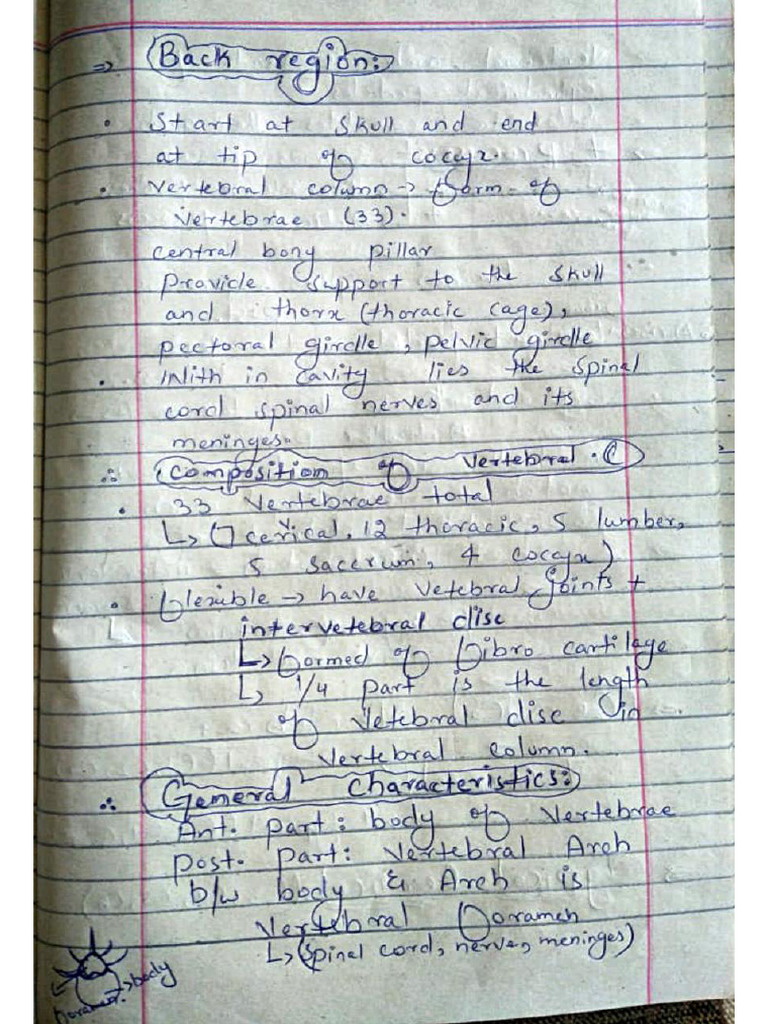 ⇒ Back region:
• Start at skull and end
at tip of cocyx.
• Vertebral column → form of
vertebrae (33).
central bony pillar
Provide support to the skull
and thorx (thoracic cage),
pectoral girdle, pelvic girdle
• Inlith in cavity lies the spinal
cord spinal nerves and its
meninges.
∴ Composition of Vertebral.C
• 33 Vertebrae total
↳ (7 cervical, 12 thoracic, 5 lumber,
5 sacerum, 4 coccyx)
• flexible → have vetebral joints +
intervetebral disc
↳ formed of fibro cartilage
↳ 1/4 part is the length
of Vetebral disc in
Vertebral column.
∴ General Characteristics:
Ant. part: body of Vertebrae
post. Part: Vertebral Arch
b/w body & Arch is
Vertebral foramen
↳ (spinal cord, nerve, meninges)
→ body
foramen